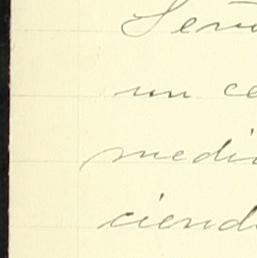 Seño
un ce
medi
ciend